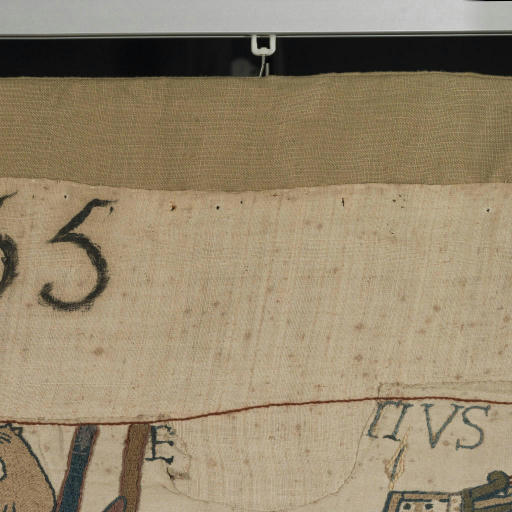 55
E TIVS